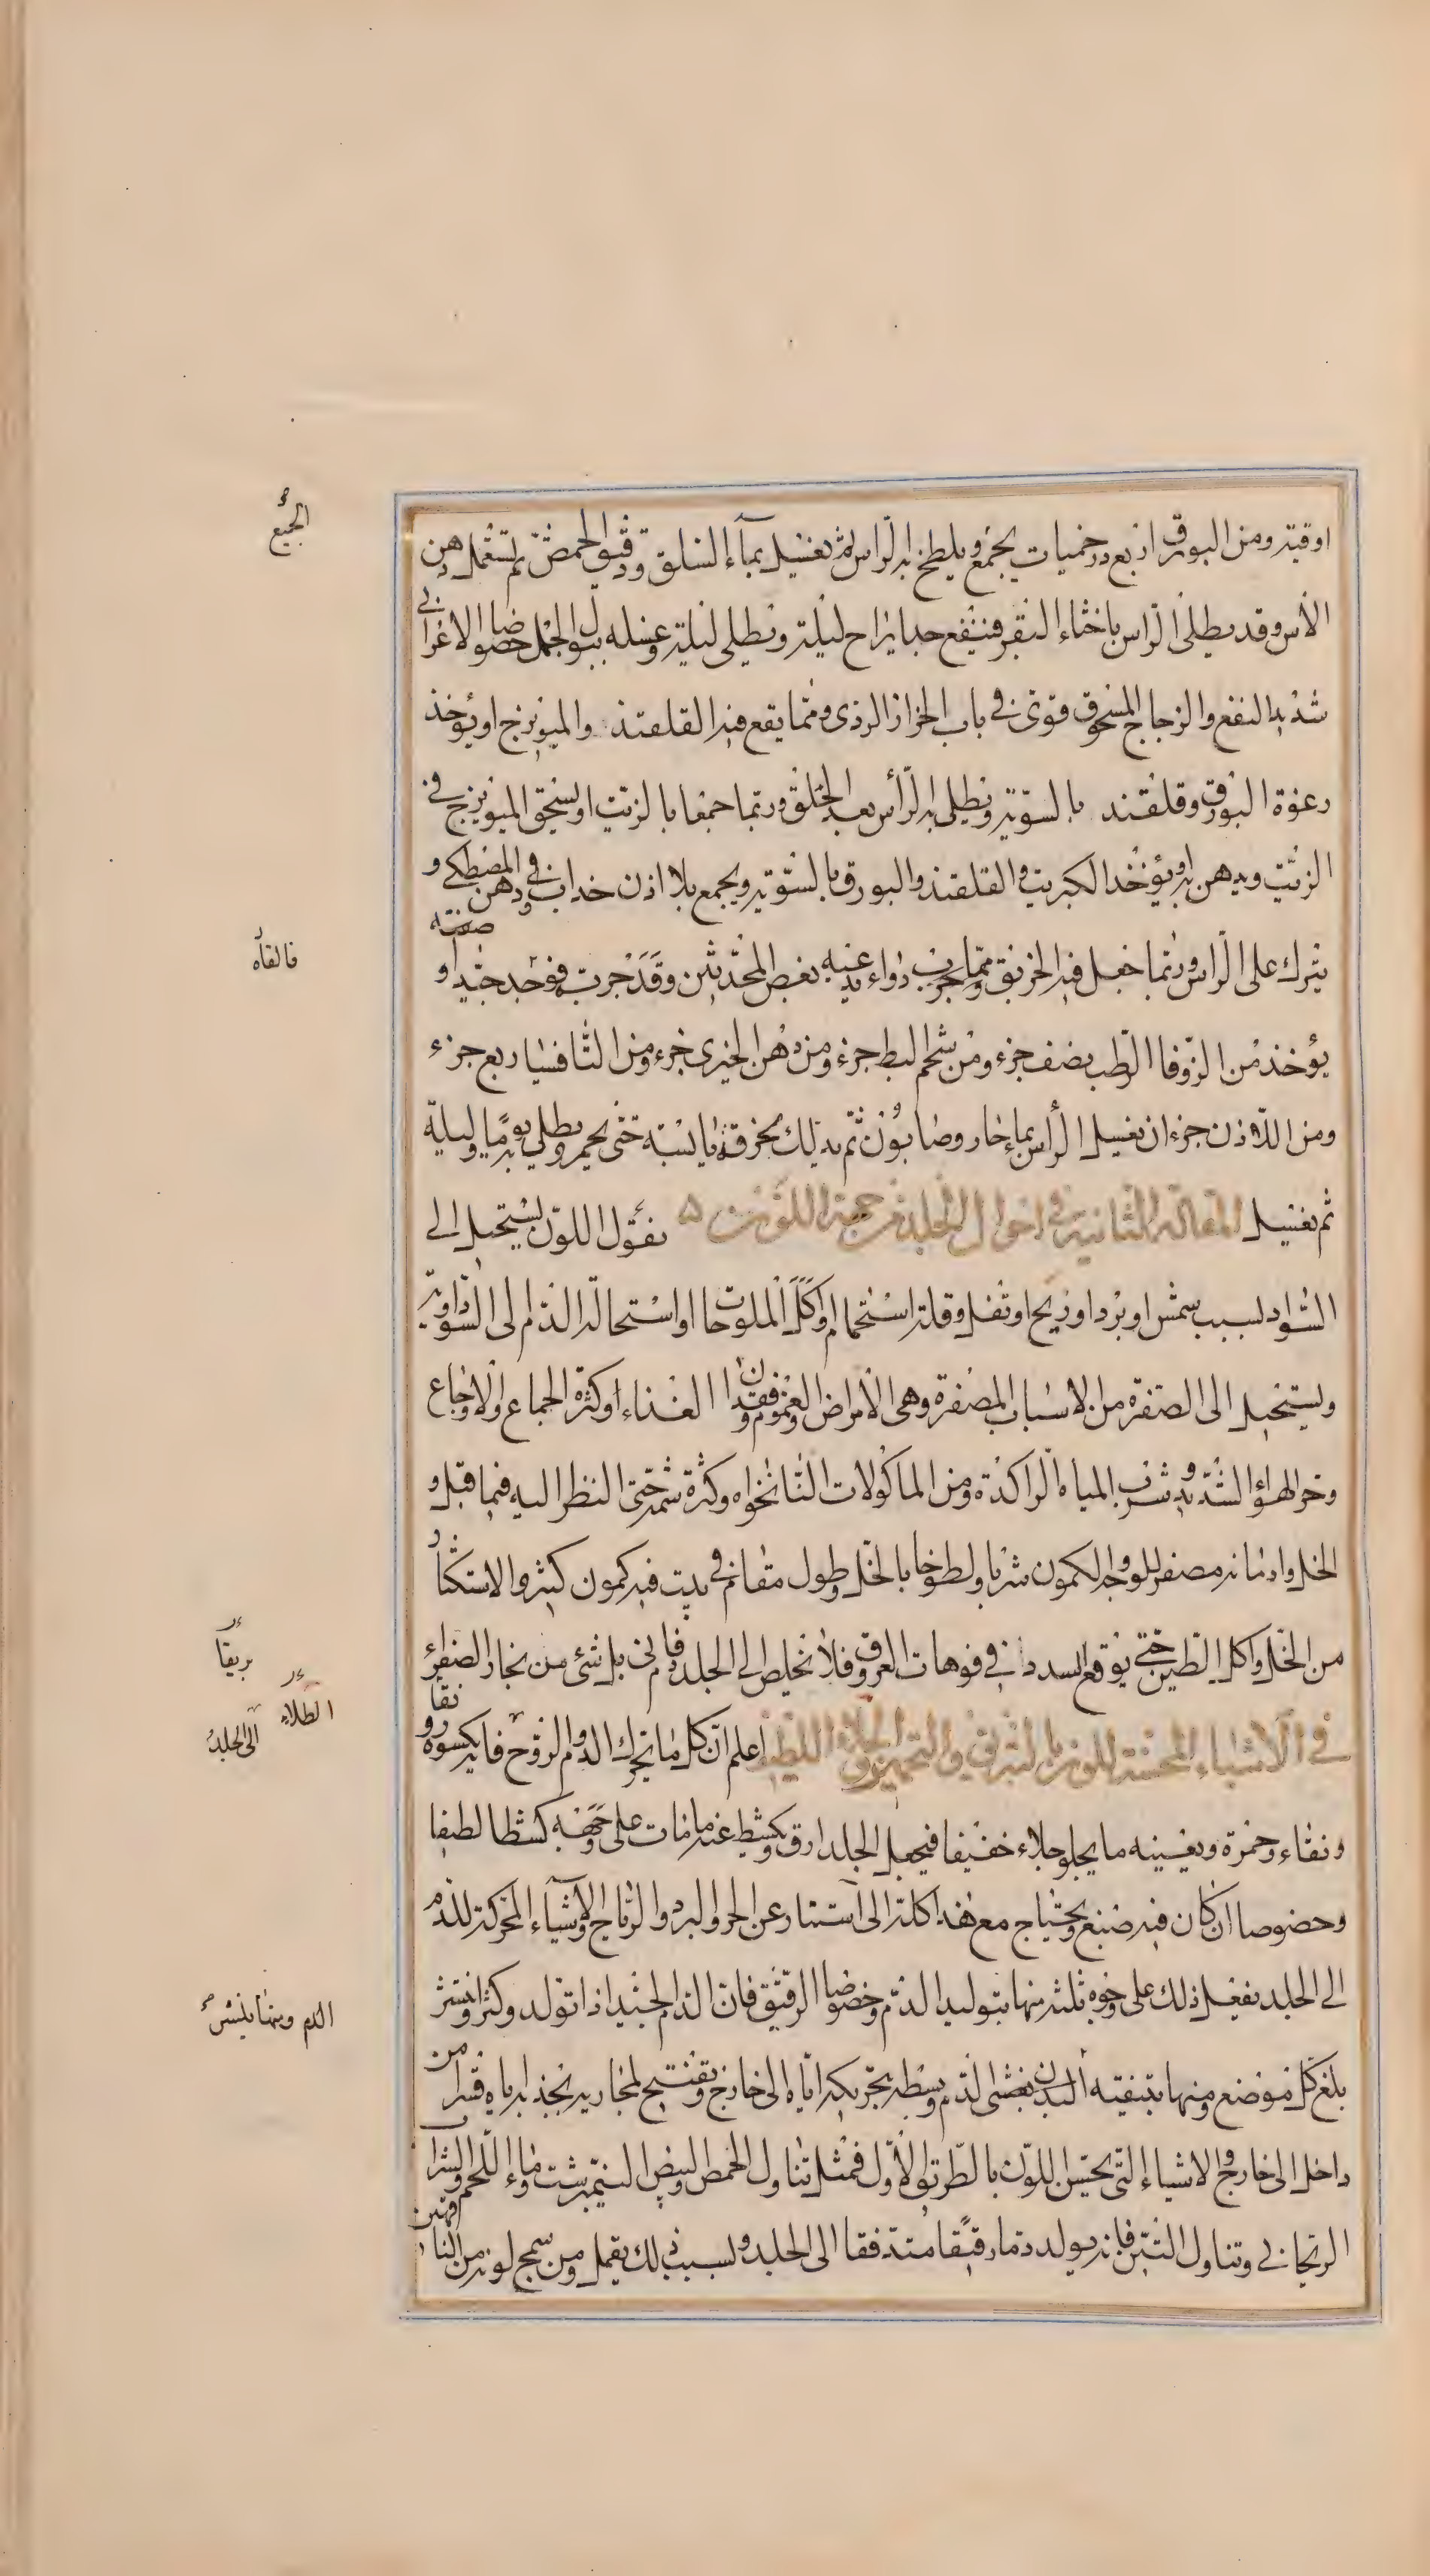 اوقية ومن البورق اربع درخميات يجمع ويلطخ به الراس ثم يغسل بماء السلق ودقيق الحمص ثم يستعمل دهن
الآس وقد يطلى الراس باخثاء البقر فينفع جدا يراح ليلة ويطلى ليلة وغسله ببول الجمل خصوصا الاعرابي
شديد النفع والزجاج المسحوق قوى في باب الحزاز الردى ومما يقع فيه القلقند والميويزج او يؤخذ
رغوة البورق وقلقند بالسوية ويطلى به الرأس بعد الحلق وربما جمعا بالزيت او يسحق الميويزج في
الزيت ويدهن به او يؤخذ الكبريت والقلقند والبورق بالسوية ويجمع بلاذن خداب في دهن المصطكى و
يترك على الراس وربما جعل فيه الخربق ومما جرب دواء يدعيه بعض المحدثين وقد جرب فوجد جيدا و صفته
يؤخذ من الزوفا الرطب نصف جزء ومن شحم البط جزء ومن دهن الخيرى جزء ومن الثافسيا ربع جزء
ومن اللاذن جزء ان يغسل الرأس بماء حار وصابون ثم يدلك بخرقة يابسة حتى يحمر ويطلى به يوما وليلة
ثم يغسل المقالة الثانية في احوال الجلد من جهة اللون ۵ نقول اللون يستحيل الى
السواد لسبب شمس او برد او ريح او ثفل وقلة استحمام او اكل الملوحات او استحالة الدم الى السوداوية
ويستحيل الى الصفرة من الاسباب المصفرة وهى الامراض والغموم وفقدان الغذاء او كثرة الجماع والاوجاع
وحر الهواء الشديد وشرب المياه الراكدة ومن الماكولات النانخواه وكثرة شمه حتى النظر اليه فيما قيل و
الخل وادمانه مصفر للوجه والكمون شربا ولطوخا بالخل وطول مقام في بيت فيه كمون كثير والاستكثار
من الخل واكل الطين حتى يوقع السدد في فوهات العروق فلا يخلص الى الجلد دم قانى بل شئ من بخار الصفراء
في الاشياء المحسنة للون بالتبريق والتحمير والجلاء اللطيف اعلم ان كل ما يحرك الدم والروح فانه يكسوه رونقا
ونقاء وحمرة ويعينه ما يجلو جلاء خفيفا فيجعل الجلد ارق ويكشط عنه ما مات على وجهه كشطا لطيفا
وخصوصا ان كان فيه صبغ ويحتاج مع هذا كله الى استتار عن الحر والبرد والرياح والاشياء المحركة للدم
الى الجلد يفعل ذلك على وجوه ثلثة منها بتوليد الدم وخصوصا الرقيق فان الدم الجيد اذا تولد وكثر وانتشر
بلغ كل موضع ومنها بتنقية البدن يغشى الدم وبسطه بتحريكه اياه الى خارج وتفتيح لمجاريه بجذبه اياه قسرا من
داخل الى خارج والاشياء التى تحسن اللون بالطريق الاول فمثل تناول الحمص والبيض النيمبرشت وماء اللحم والشراب
الريحانى وتناول التين فانه يولد دما رقيقا متدفقا الى الجلد ولسبب ذلك يقمل ومن سمج لونه من الناقهين
الجميع
فالقاه
بريقا
الطلاء
الى الجلد
الدم ومنها بنيش